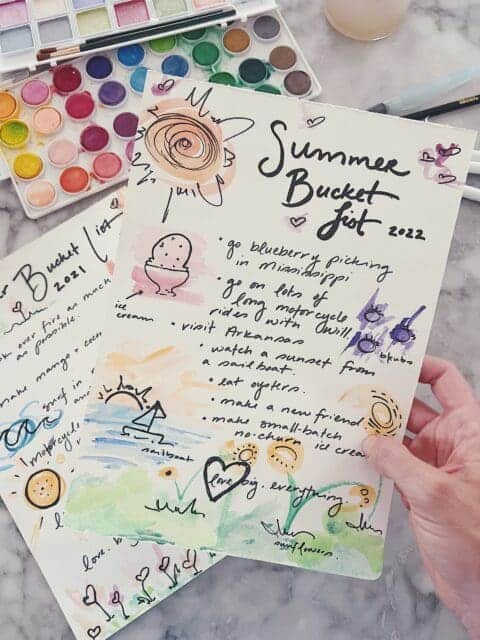 Summer
Bucket
List 2022
• go blueberry picking
in Mississippi
• go on lots of
long motorcycle
rides with Will
• visit Arkansas
• watch a sunset from
a sailboat.
• eat oysters.
• make a new friend
• make small-batch
no-churn ice cream
love big. everything.
ice
cream
blubs
sailboat
sunflowers
Bucket List
2021
over fire as much
as possible.
make mango +
surf in
motorcycle
love.